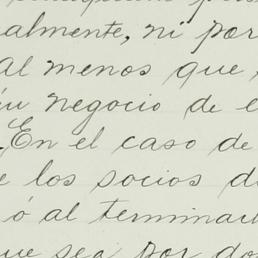 almente, ni por
al menos que,
negocio de
En el caso de
los socios d
ó al terminar
que sea por do